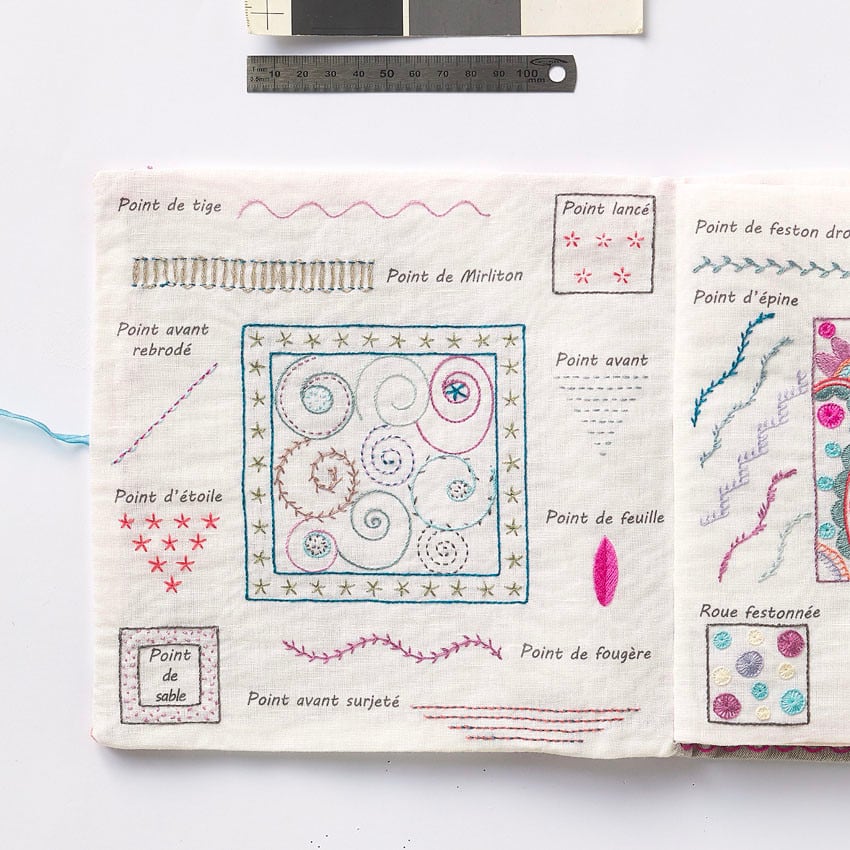 10 20 30 40 50 60 70 80 90 100
mm
Point de tige
Point lancé
Point de Mirliton
Point avant
rebrodé
Point avant
Point d'étoile
Point de feuille
Point
de
sable
Point de fougère
Point avant surjeté
Point de feston dro
Point d'épine
Roue festonnée